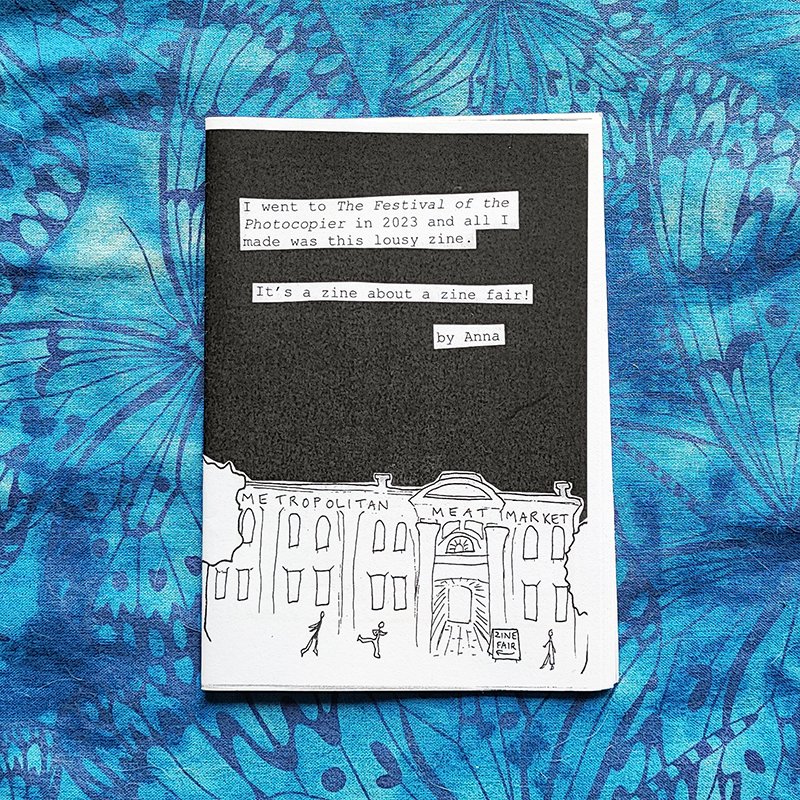 I went to The Festival of the
Photocopier in 2023 and all I
made was this lousy zine.
It's a zine about a zine fair!
by Anna
METROPOLITAN MEAT MARKET
ZINE
FAIR